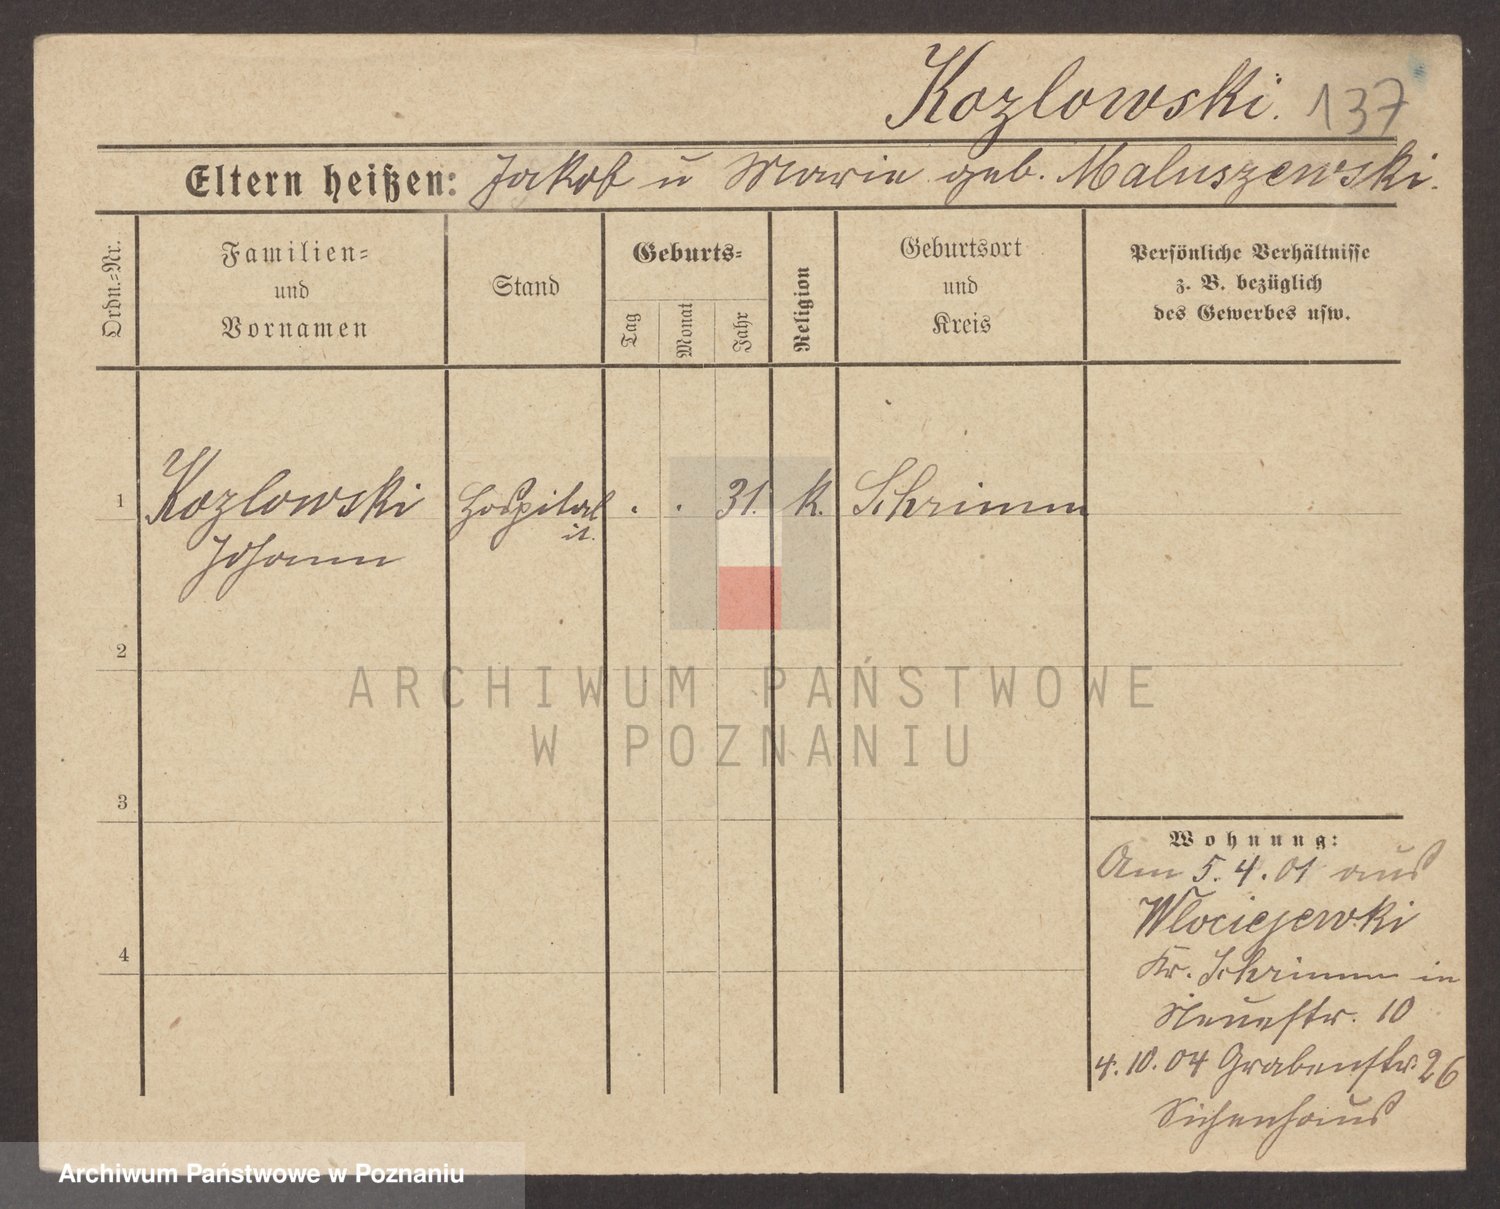 Kozlowski. 137
Eltern heißen: Jakob u Marie geb. Maluszewski.
Ordn.-Nr.
Familien=
und
Vornamen
Stand
Geburts=
Tag
Monat
Jahr
Religion
Geburtsort
und
Kreis
Persönliche Verhältnisse
z. B. bezüglich
des Gewerbes usw.
1 Kozlowski Hospital . . 31. K. Schrimm
it.
Johann
2
3
4
Wohnung:
Am 5.4.01 aus
Wlociejewki
Kr. Schrimm in
Neuestr. 10
4.10.04 Grabenstr. 26
Sichenhaus
ARCHIWUM PAŃSTWOWE
W POZNANIU
Archiwum Państwowe w Poznaniu